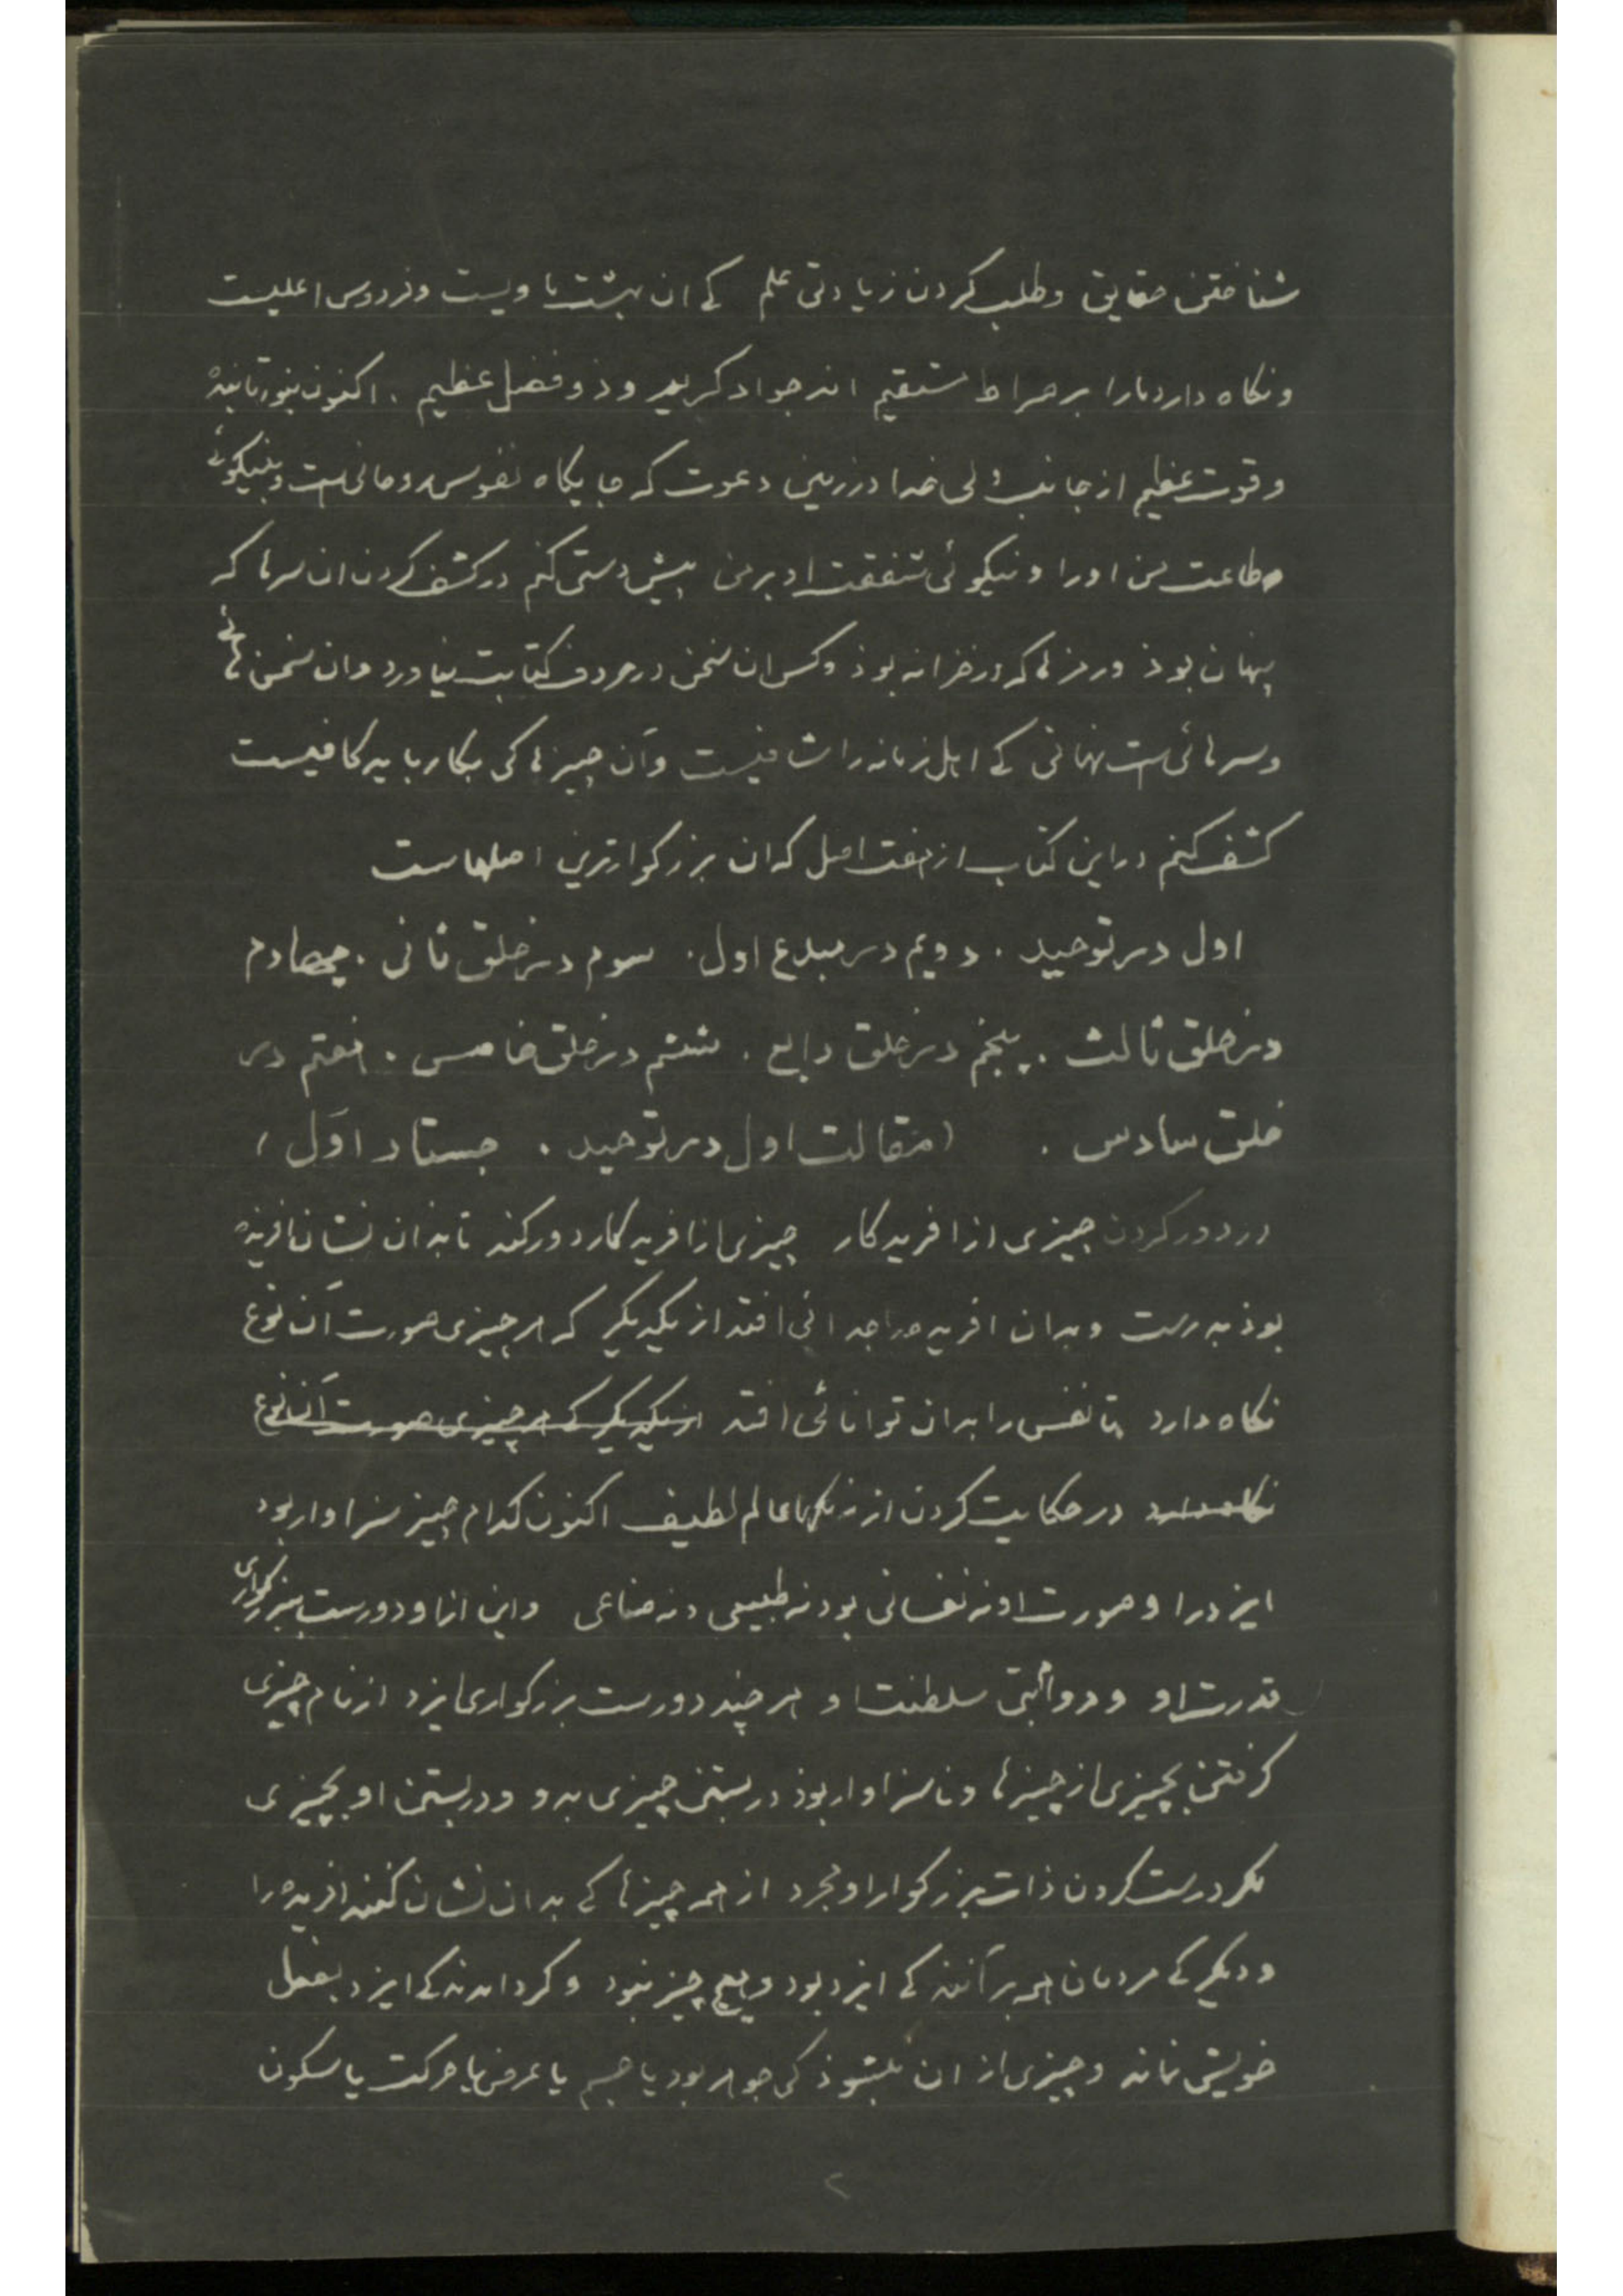 شناختن حقایق و طلب کردن زیادتی علم کے ان بهشت ماویست و فردوس اعلیست
و نکاه دارد مارا بر صراط مستقیم انه جواد کریم و ذو فضل عظیم . اکنون بنور تابنده
و قوت عظیم از جانب ولی خدا در زمین دعوت که جایکاه نفوس روحانی است و بنیکوئے
طاعت من اورا و نیکوئی شفقت او بر من پیش دستی کنم در کشف کردن ان سرها که
پنهان بوذ و رمزها که در خزانه بوذ و کس ان سخن در حروف کتابت نیاورد وان سخن هائے
و سرهائی است نهانی کے اهل زمانه را شافیست و آن چیزها کی بکار باید کافیست
کشف کنم در این کتاب از هفت اصل که ان بزرکوارترین اصلهاست
اول در توحید . دویم در مبدع اول . سوم در خلق ثانی . چهارم
در خلق ثالث . پنجم در خلق رابع . ششم در خلق خامس . هفتم در
خلق سادس . (مقالت اول در توحید . جستار اوّل)
در دور کردن چیزی از افریدکار چیزی از افریدکار دور کند تا بدان نشان افریده
بوذ بدرست و بدان افریده را جدائی افتد از یکدیکر که هر چیزی صورت آن نوع
نکاه دارد تا نفس را بدان توانائی افتد از یکدیکر که هر چیزی صورت آن نوع
نکاه دارد در حکایت کردن از عالم لطیف اکنون کدام چیز سزاوار بود
ایزد را و صورت او نه نفسانی بود نه طبیعی و نه صناعی و این از او دورست ببزرکواری
قدرت او و سلطنت او هر چند دورست بزرکواری ایزد از نام چیزی
کرفتن بچیزی از چیزها و ناسزاوار بوذ در بستن چیزی بدو و در بستن او بچیزی
مکر درست کردن ذات بزرکوار او مجرد از همه چیزها کے بدان نشان کنند افریده را
و دیکر کے مردمان همه بر آنند کے ایزد بود و هیچ چیز نبود و کرداندند کے ایزد بفعل
خویش نماند و چیزی از ان نشوذ کی جوهر بود یا جسم یا عرض یا حرکت یا سکون
۲